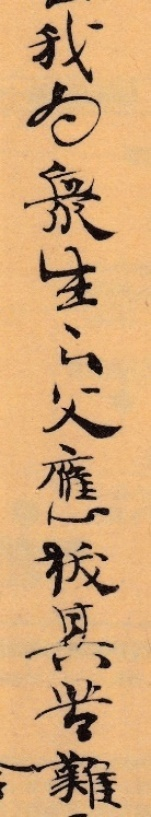 我為衆生之父應拔其苦難